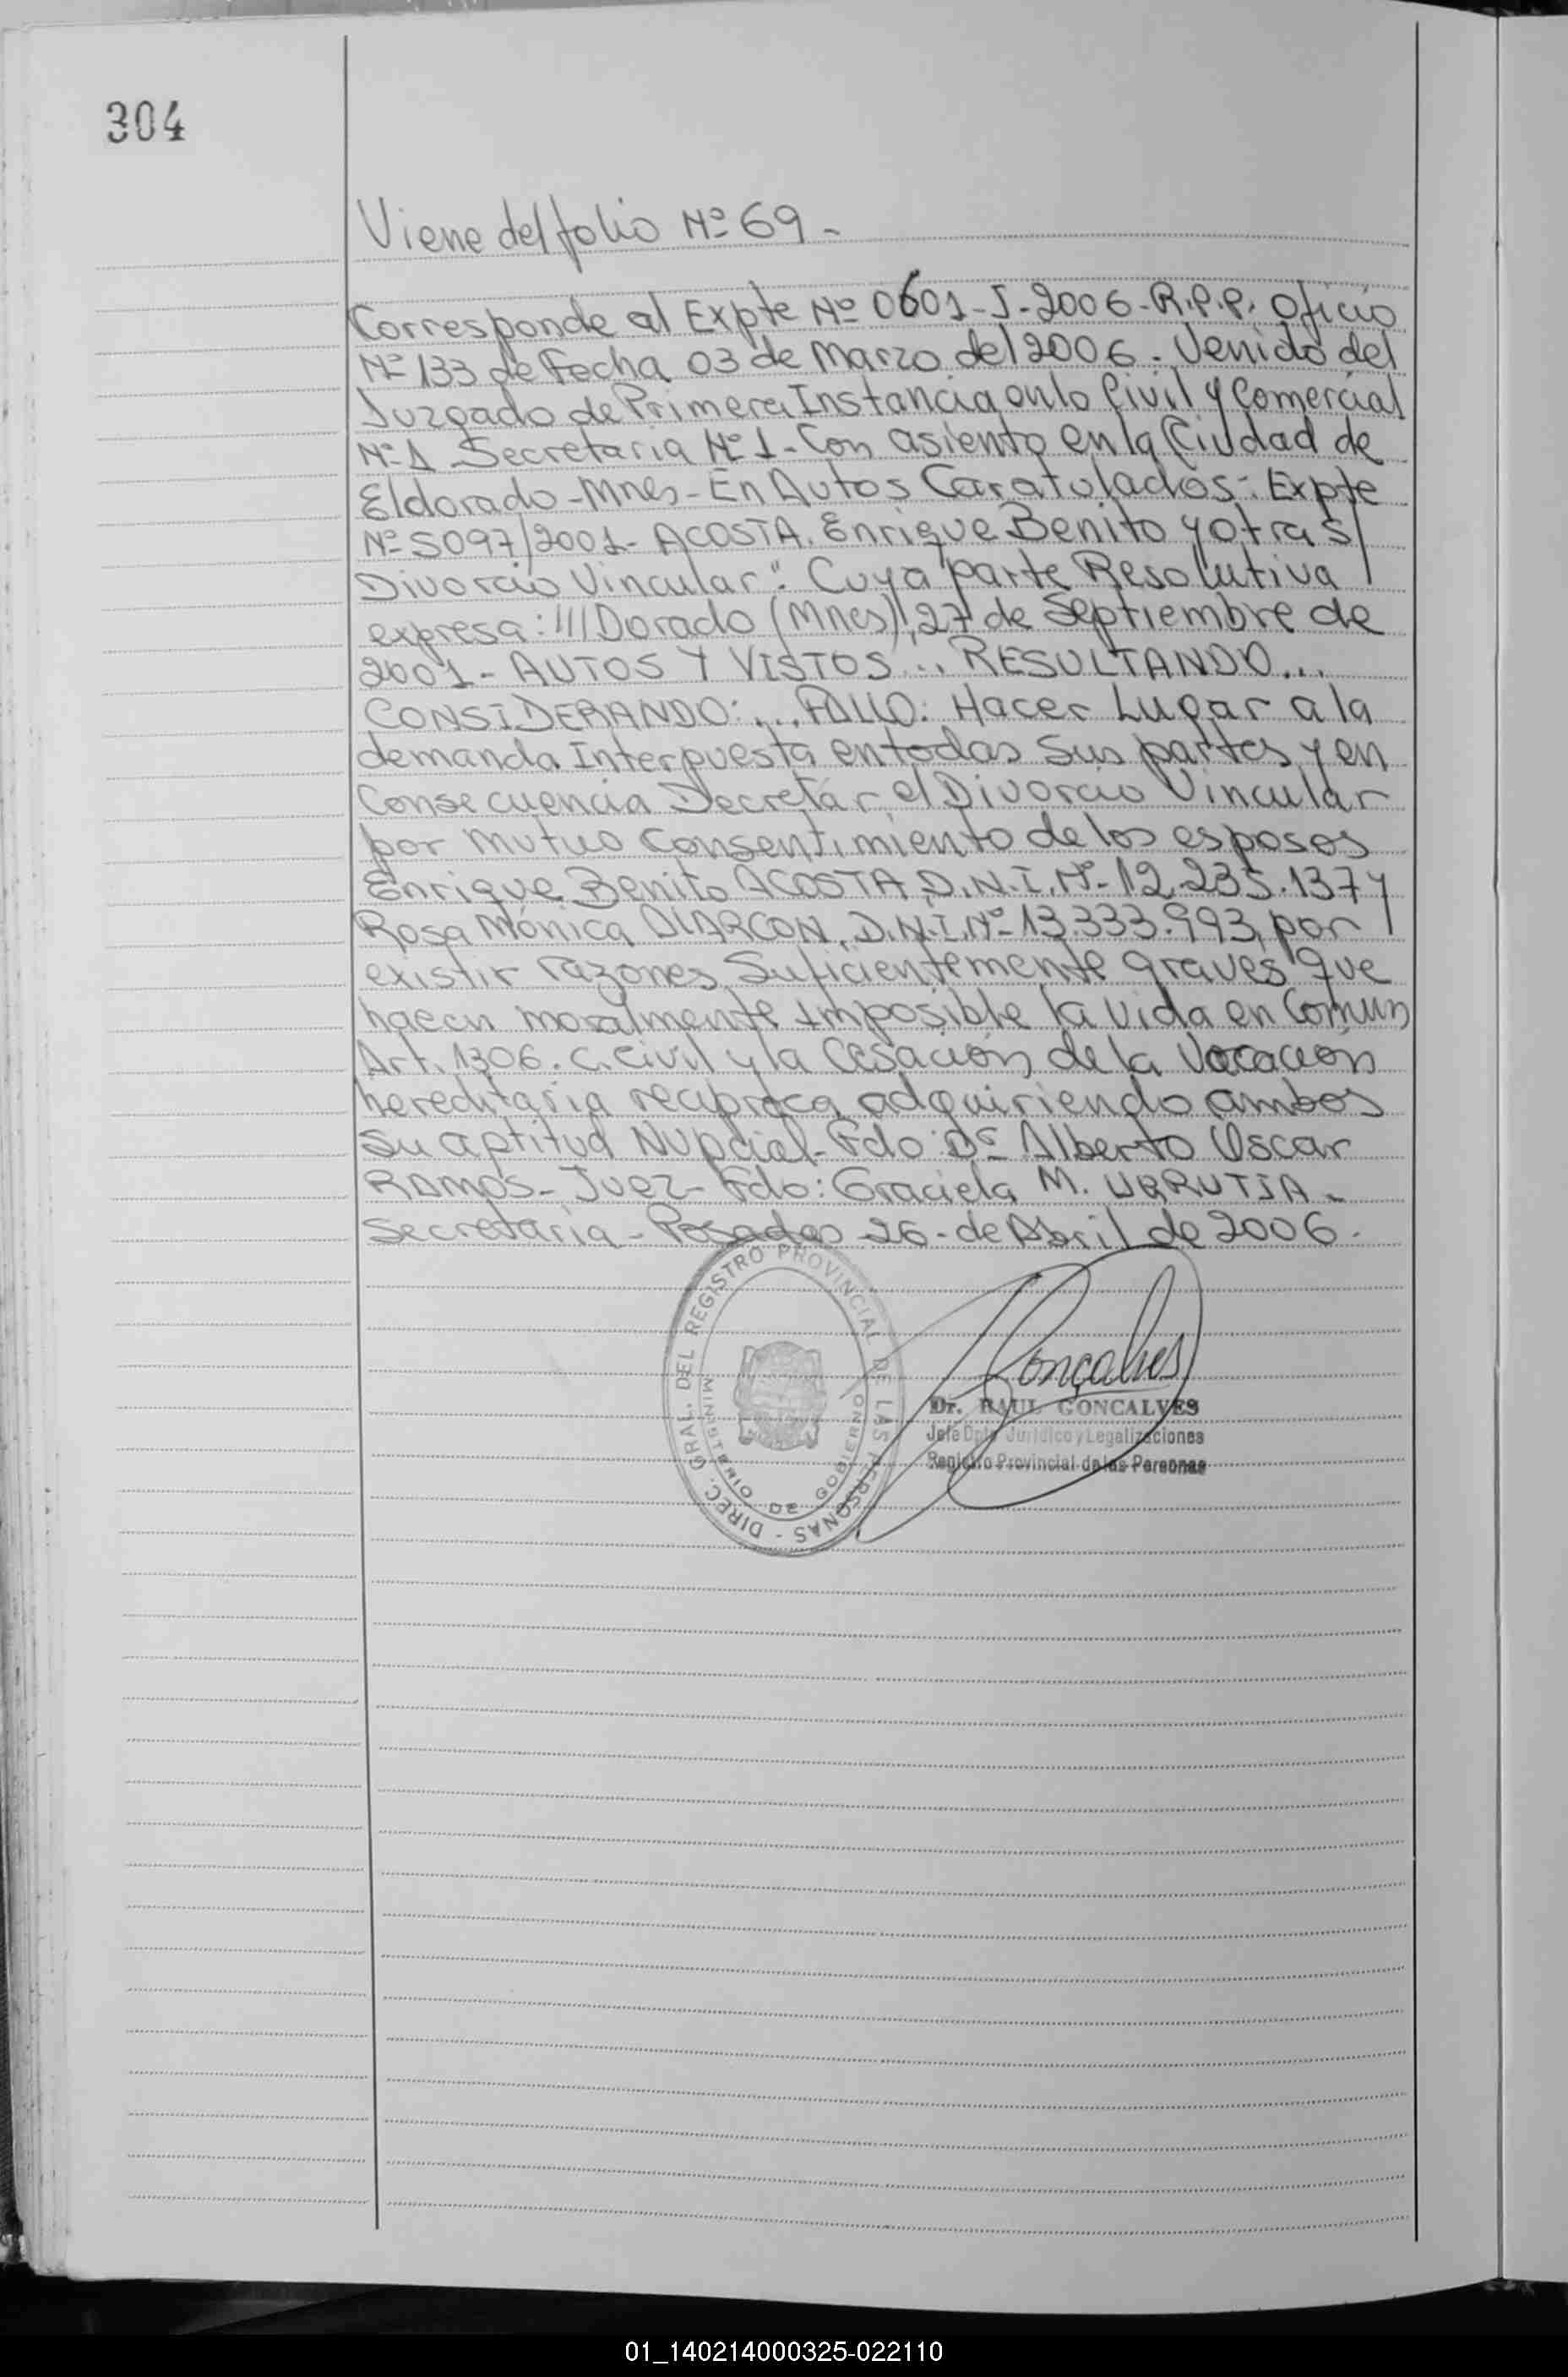 304
Viene del folio Nº 69 -
Corresponde al Expte Nº 0601-J-2006-R.P.P. Oficio
Nº 133 de Fecha 03 de Marzo del 2006. Venido del
Juzgado de Primera Instancia en lo Civil y Comercial
Nº 1 Secretaria Nº 1 - Con asiento en la Ciudad de
Eldorado - Mnes - En Autos Caratulados: Expte
Nº 5097/2001- ACOSTA. Enrique Benito y otra s/
Divorcio Vincular". Cuya parte Resolutiva
expresa: ///Dorado (Mnes), 27 de Septiembre de
2001 - AUTOS Y VISTOS... RESULTANDO...
CONSIDERANDO:... FALLO: Hacer Lugar a la
demanda Interpuesta en todas Sus partes y en
Consecuencia Decretar el Divorcio Vincular
por mutuo Consentimiento de los esposos
Enrique Benito ACOSTA, D.N.I. Nº - 12.235.137 y
Rosa Mónica ALARCON, D.N.I. Nº - 13.333.993, por
existir razones Suficientemente graves que
hacen moralmente Imposible la vida en Comun
Art. 1306. C. Civil y la Cesación de la Vocación
hereditaria reciproca, adquiriendo ambos
su aptitud Nupcial - Fdo: Dr. Alberto Oscar
RAMOS - Juez - Fdo: Graciela M. URRUTIA -
Secretaria - Posadas 26 - de Abril de 2006.
DIREC. GRAL. DEL REGISTRO PROVINCIAL DE LAS PERSONAS -
MINISTERIO DE GOBIERNO
Gonçalves
Dr. RAUL GONCALVES
Jefe Dpto Jurídico y Legalizaciones
Registro Provincial de las Personas
01_140214000325-022110